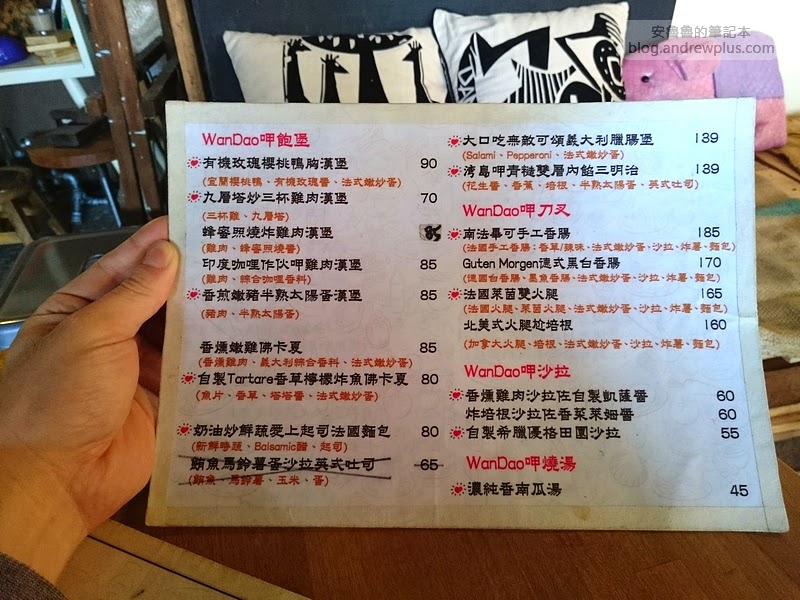 安魯魯的筆記本
blog.andrewplus.com
WanDao呷飽堡
有機玫瑰櫻桃鴨胸漢堡 90
(宜蘭櫻桃鴨、有機玫瑰醬、法式嫩炒蛋)
九層塔炒三杯雞肉漢堡 70
(三杯雞、九層塔)
蜂蜜照燒炸雞肉漢堡 85
(雞肉、蜂蜜照燒醬)
印度咖哩作伙呷雞肉漢堡 85
(雞肉、綜合咖哩香料)
香煎嫩豬半熟太陽蛋漢堡 85
(豬肉、半熟太陽蛋)
香燻嫩雞佛卡夏 85
(香燻雞肉、義大利綜合香料、法式嫩炒蛋)
自製Tartare香草檸檬炸魚佛卡夏 80
(魚片、香草、塔塔醬、法式嫩炒蛋)
奶油炒鮮蔬愛上起司法國麵包 80
(新鮮時蔬、Balsamic醋、起司)
鮪魚馬鈴薯蛋沙拉英式吐司 65
(鮪魚、馬鈴薯、玉米、蛋)
大口吃無敵可頌義大利臘腸堡 139
(Salami、Pepperoni、法式嫩炒蛋)
湾島呷青糙雙層內餡三明治 139
(花生醬、香蕉、培根、半熟太陽蛋、英式吐司)
WanDao呷刀叉
南法畢可手工香腸 185
(法國手工香腸:香草/辣味、法式嫩炒蛋、沙拉、炸薯、麵包)
Guten Morgen德式黑白香腸 170
(德國白香腸、墨魚香腸、法式嫩炒蛋、沙拉、炸薯、麵包)
法國萊茵雙火腿 165
(法國火腿、萊茵火腿、法式嫩炒蛋、沙拉、炸薯、麵包)
北美式火腿尬培根 160
(加拿大火腿、培根、法式嫩炒蛋、沙拉、炸薯、麵包)
WanDao呷沙拉
香燻雞肉沙拉佐自製凱薩醬 60
炸培根沙拉佐香菜萊姆醬 60
自製希臘優格田園沙拉 55
WanDao呷燒湯
濃純香南瓜湯 45